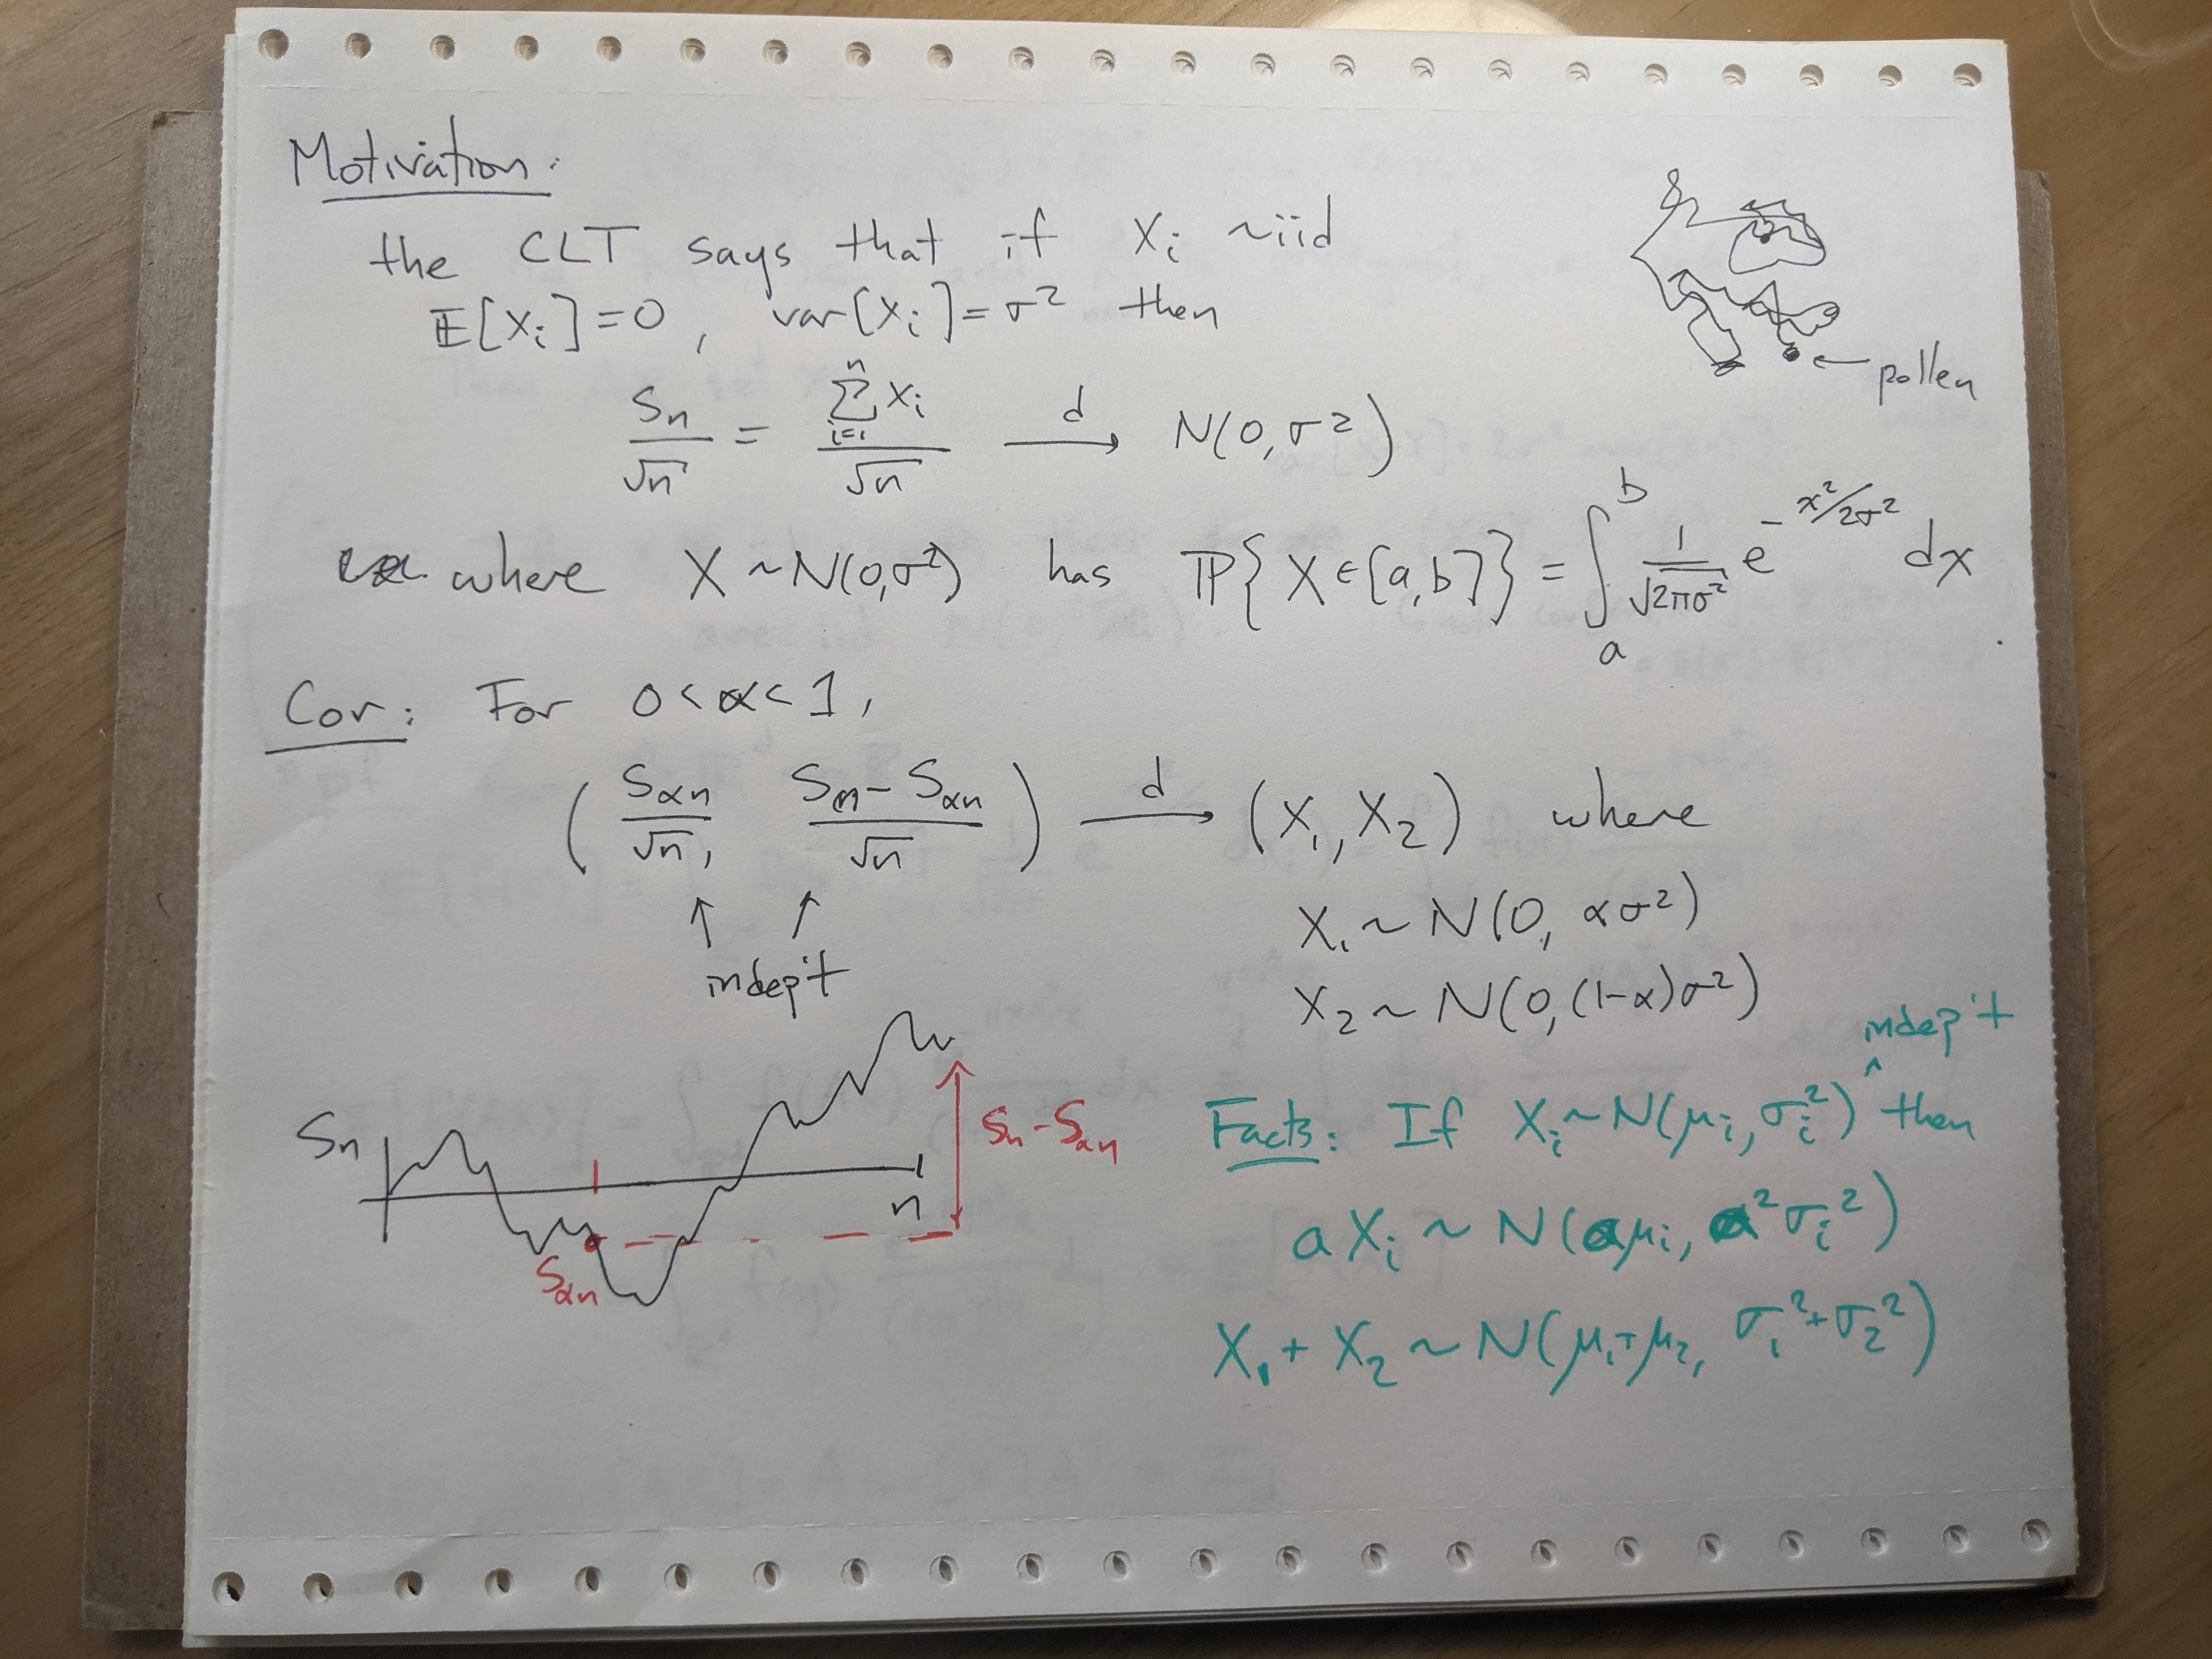 Motivation:
the CLT says that if Xᵢ ~iid
𝔼[Xᵢ]=0, var[Xᵢ]=σ² then
← pollen
Sₙ/√n = ∑ᵢ₌₁ⁿ Xᵢ/√n →ᵈ N(0,σ²)
where X~N(0,σ²) has ℙ{X∈[a,b]} = ∫ₐᵇ 1/√(2πσ²) e^(-x²/2σ²) dx
Cor: For 0<α<1,
(S_αn/√n, Sₙ-S_αn/√n) →ᵈ (X₁,X₂) where
↑ ↑
indep't
X₁~N(0, ασ²)
X₂~N(0,(1-α)σ²)
Sₙ
n
Sₙ-S_αn
S_αn
indep't
^
Facts: If Xᵢ~N(μᵢ,σᵢ²) then
aXᵢ ~ N(aμᵢ, a²σᵢ²)
X₁ + X₂ ~ N(μ₁+μ₂, σ₁²+σ₂²)